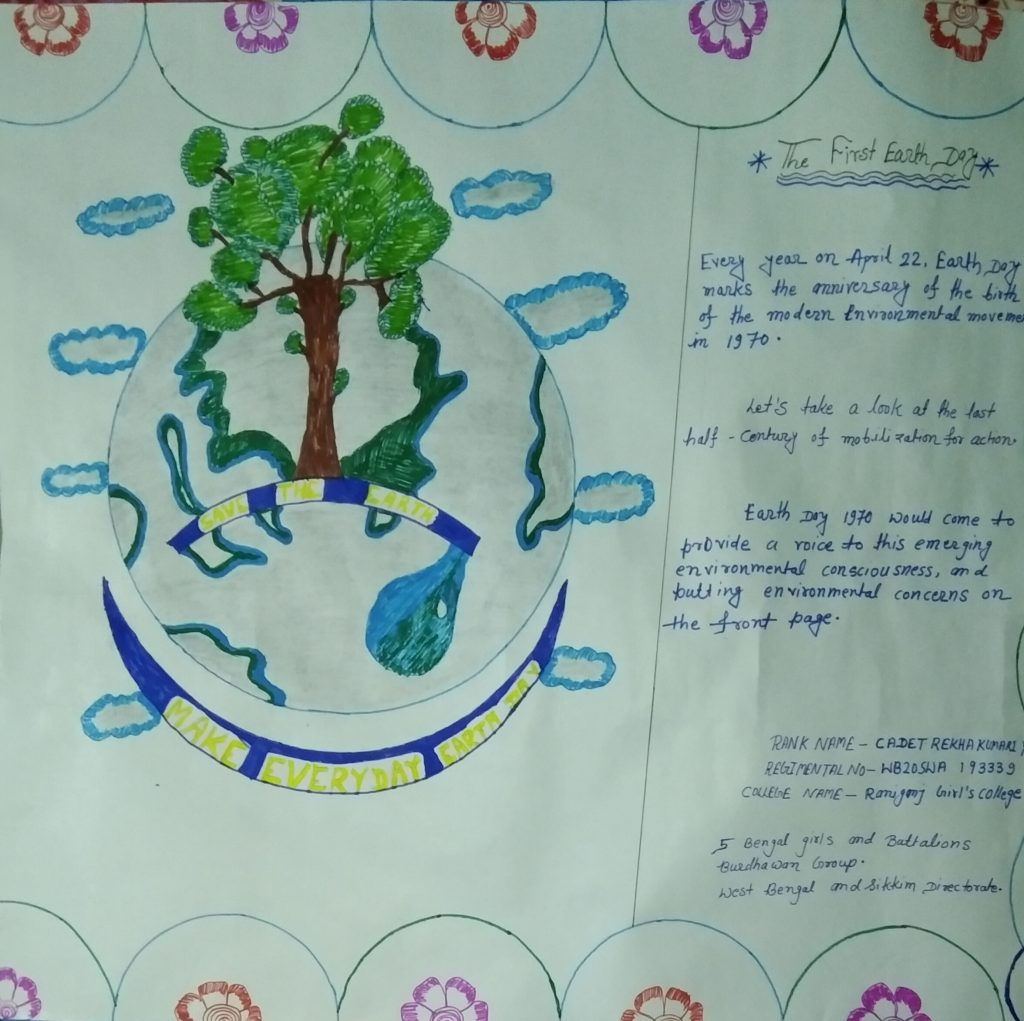 SAVE THE EARTH
MAKE EVERYDAY EARTH DAY
* The First Earth Day *
Every year on April 22, Earth Day
marks the anniversary of the birth
of the modern Environmental moveme
in 1970.
Let's take a look at the last
half - Century of mobilization for action.
Earth Day 1970 would come to
provide a voice to this emerging
environmental consciousness, and
putting environmental concerns on
the front page.
RANK NAME - CADET REKHA KUMARI
REGIMENTAL NO - WB20SWA 193339
COLLEGE NAME - Raniganj Girl's College
5 Bengal girls and Battalions
Burdhawan Group.
West Bengal and Sikkim Directorate.